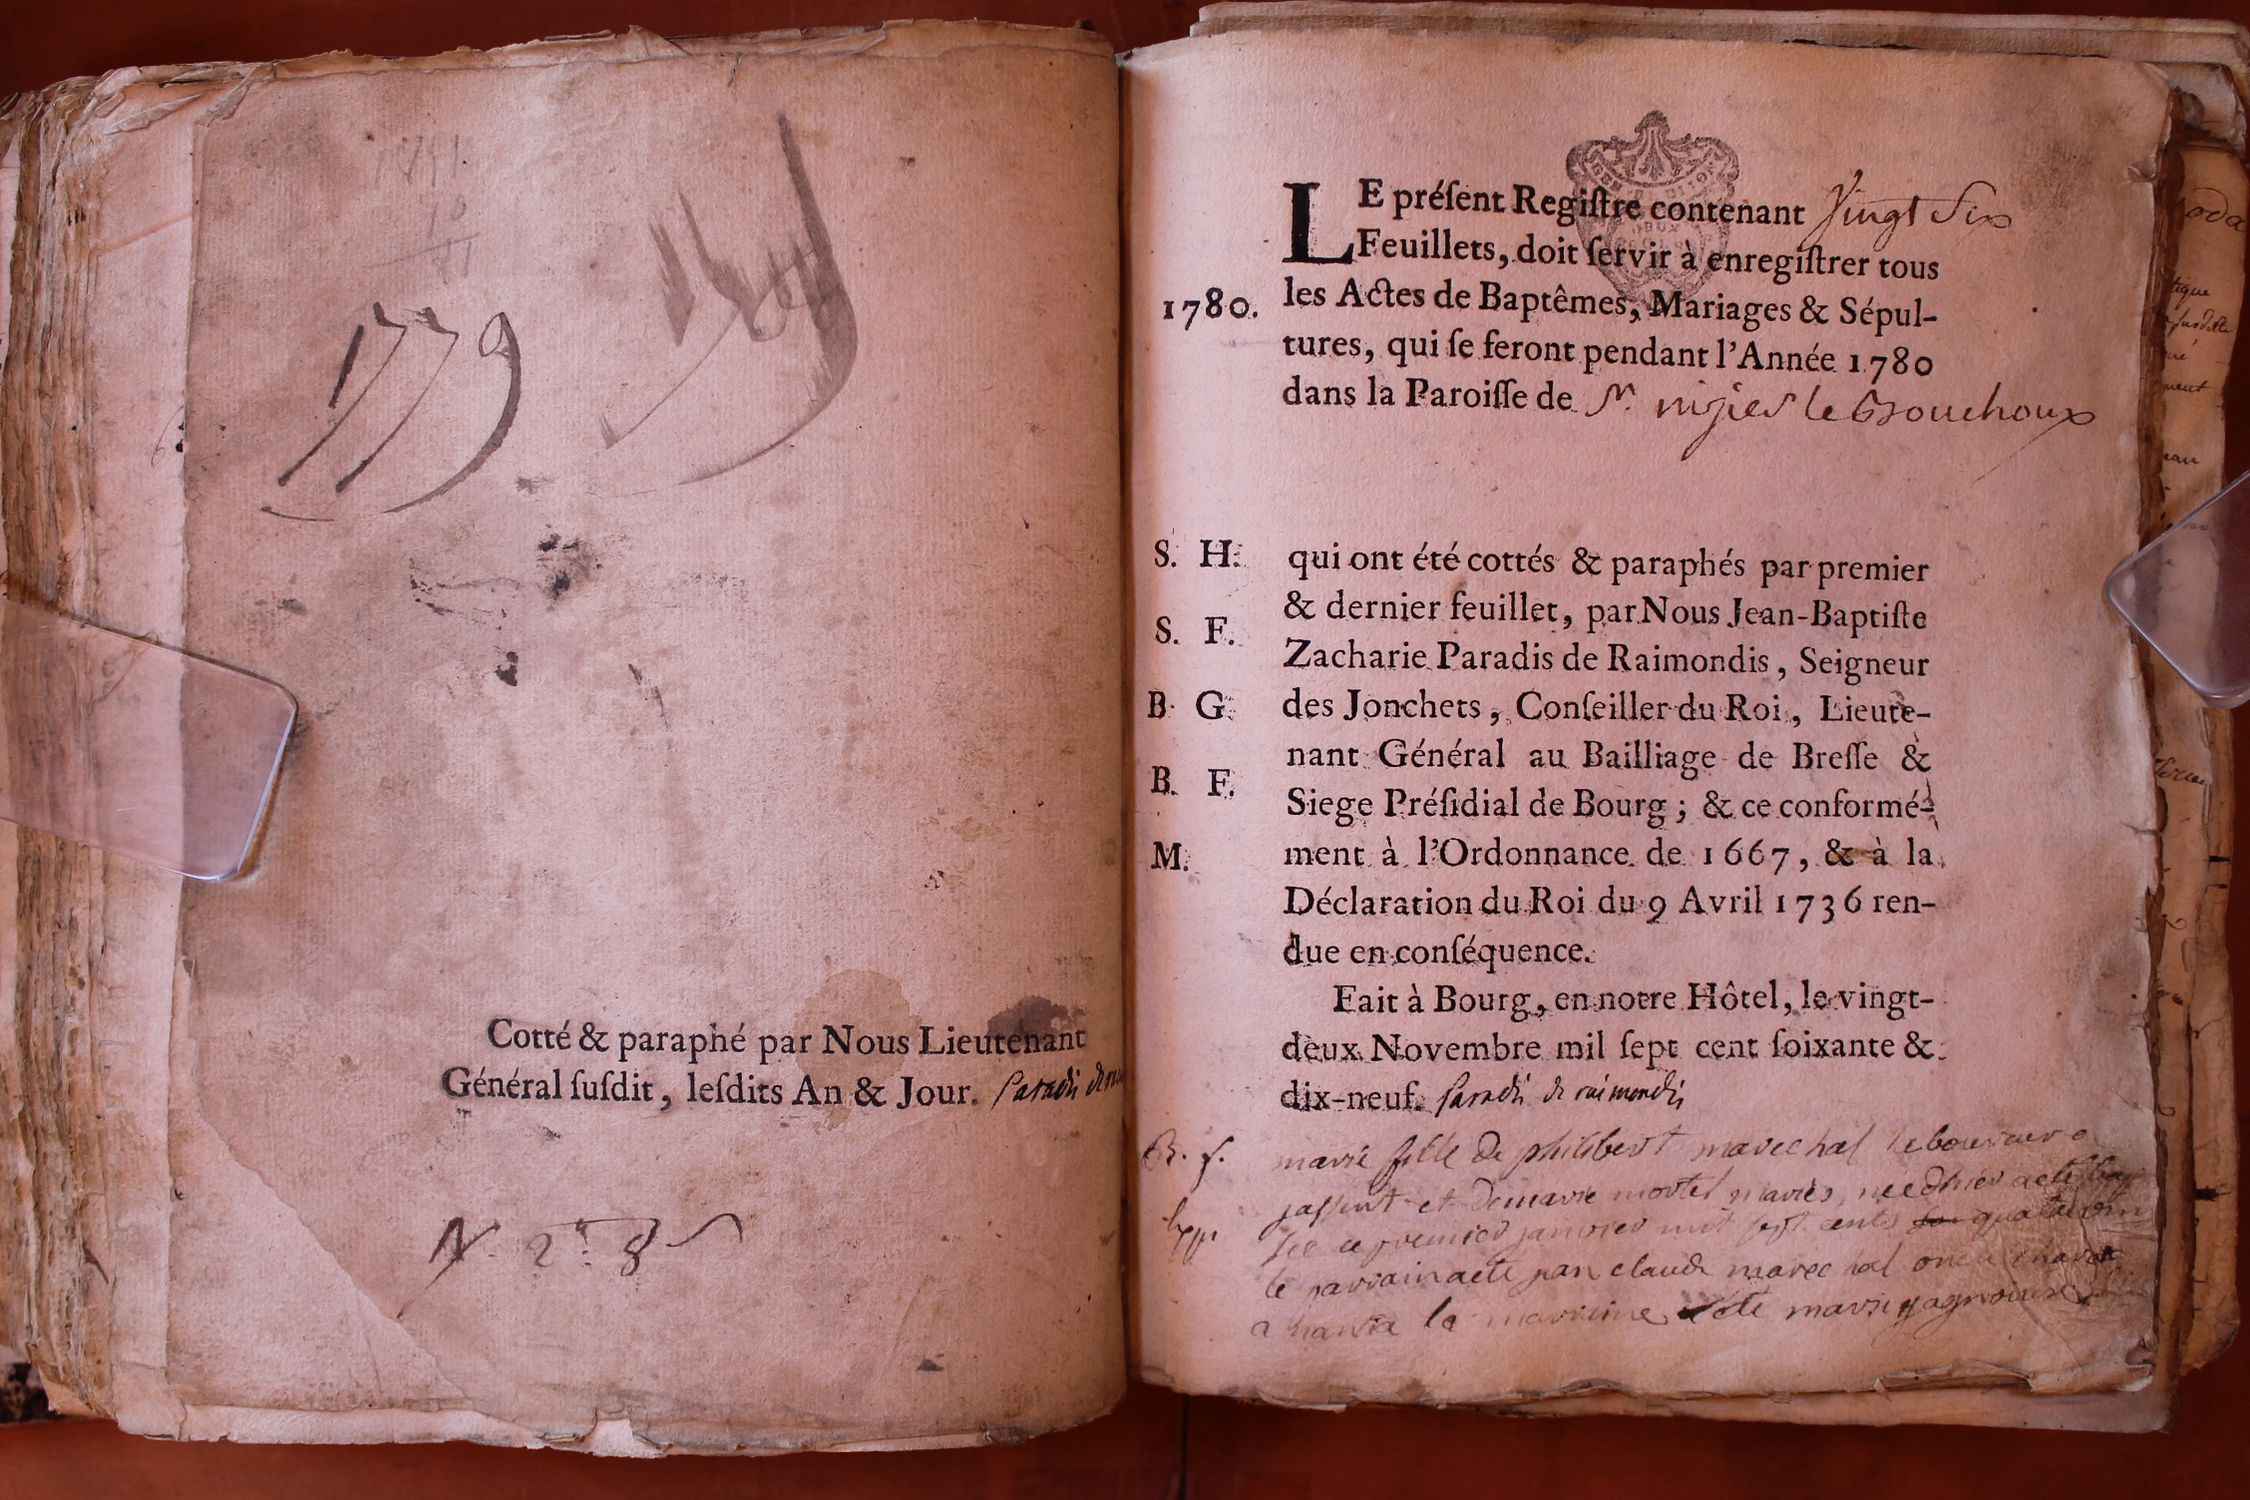 1779
Cotté & paraphé par Nous Lieutenant
Général ſuſdit, leſdits An & Jour. Paradis de
N. 2. 8
LE préſent Regiſtre contenant Vingt Six
Feuillets, doit ſervir à enregiſtrer tous
1780. les Actes de Baptêmes, Mariages & Sépul-
tures, qui ſe feront pendant l'Année 1780
dans la Paroiſſe de St. nizier le Bouchoux
S. H. qui ont été cottés & paraphés par premier
& dernier feuillet, par Nous Jean-Baptiſte
S. F. Zacharie Paradis de Raimondis, Seigneur
B. G. des Jonchets, Conſeiller du Roi, Lieute-
nant Général au Bailliage de Breſſe &
B. F. Siege Préſidial de Bourg; & ce conformé-
M. ment à l'Ordonnance de 1667, & à la
Déclaration du Roi du 9 Avril 1736 ren-
due en conſéquence.
Fait à Bourg, en notre Hôtel, le vingt-
deux Novembre mil ſept cent ſoixante &
dix-neuf. Paradis de raimondis
B. f. marie fille de philibert marechal laboureur
et de marie mortel mariés, née hier a eté
ce premier janvier mil sept cents quatre
le parrain a eté jean claude marechal
la marraine a été marie